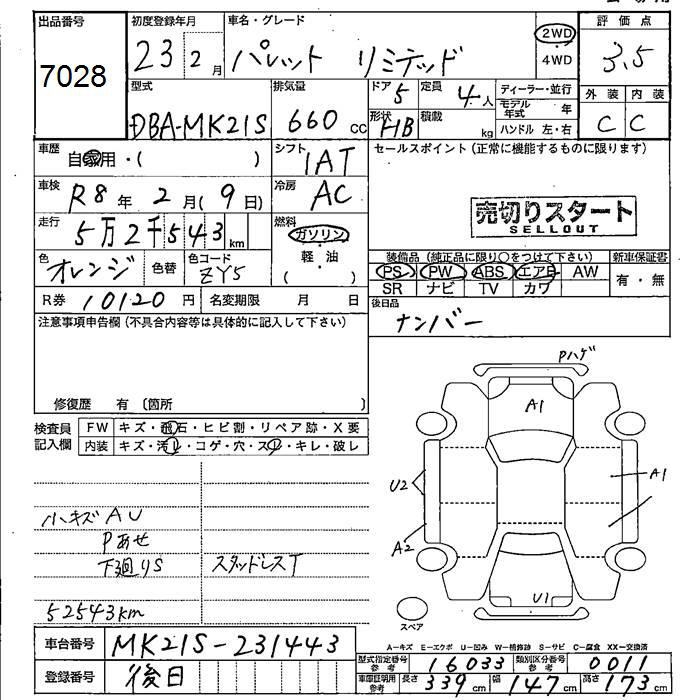 出品番号 初度登録年月 車名・グレード 評価点
7028 23年2月 パレット リミテッド 2WD・4WD 3.5
型式 排気量 ドア 5 定員 4人 ディーラー・並行 外装 内装
DBA-MK21S 660cc 形状 HB 積載 kg モデル年式 年 C C
ハンドル 左・右
車歴 自家用・( ) シフト IAT セールスポイント(正常に機能するものに限ります)
車検 R8年2月(9日) 冷房 AC
売切りスタート
SELLOUT
走行 5万2千543km 燃料 ガソリン・軽・油 ( )
色 オレンジ 色替 色コード ZY5
装備品(純正品に限り○をつけて下さい) 新車保証書
PS PW ABS エアB AW 有・無
SR ナビ TV カワ
R券 10120円 名変期限 月 日
後日品
ナンバー
注意事項申告欄(不具合内容等は具体的に記入して下さい)
修復歴 有〔箇所 〕
検査員記入欄 FW キズ・飛石・ヒビ割・リペア跡・X要
内装 キズ・汚レ・コゲ・穴・スレ・キレ・破レ
Pハゲ
A1
U2
A1
A2
U1
スペア
小キズ AU
Pあせ
下廻りS スタッドレスT
52543km
A-キズ E-エクボ U-凹み W-補修跡 S-サビ C-腐食 XX-交換済
車台番号 MK21S-231443
型式指定番号 参考 16033 類別区分番号 参考 0011
登録番号 後日
車庫証明用 参考 長さ 339cm 幅 147cm 高さ 173cm